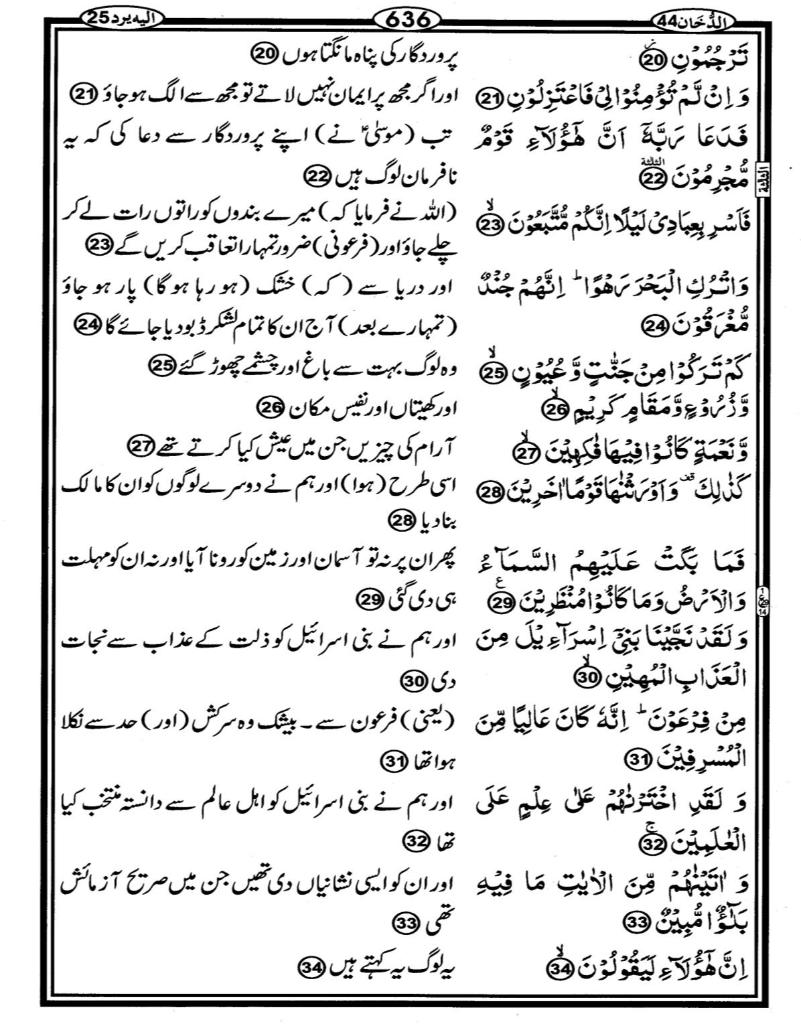 الدُّخَان44
636
اليه يرد25
تَرْجُمُوْنِ 20
وَ اِنْ لَّمْ تُؤْمِنُوْا لِيْ فَاعْتَزِلُوْنِ 21
فَدَعَا رَبَّهٗٓ اَنَّ هٰٓؤُلَآءِ قَوْمٌ
مُّجْرِمُوْنَ 22
فَاَسْرِ بِعِبَادِيْ لَيْلًا اِنَّكُمْ مُّتَّبَعُوْنَ 23
وَاتْرُكِ الْبَحْرَ رَهْوًا ؕ اِنَّهُمْ جُنْدٌ
مُّغْرَقُوْنَ 24
كَمْ تَرَكُوْا مِنْ جَنّٰتٍ وَّ عُيُوْنٍ 25
وَّ زُرُوْعٍ وَّ مَقَامٍ كَرِيْمٍ 26
وَّ نَعْمَةٍ كَانُوْا فِيْهَا فٰكِهِيْنَ 27
كَذٰلِكَ ۫ وَ اَوْرَثْنٰهَا قَوْمًا اٰخَرِيْنَ 28
فَمَا بَكَتْ عَلَيْهِمُ السَّمَآءُ
وَالْاَرْضُ وَمَا كَانُوْا مُنْظَرِيْنَ 29
وَ لَقَدْ نَجَّيْنَا بَنِيْٓ اِسْرَآءِيْلَ مِنَ
الْعَذَابِ الْمُهِيْنِ 30
مِنْ فِرْعَوْنَ ؕ اِنَّهٗ كَانَ عَالِيًا مِّنَ
الْمُسْرِفِيْنَ 31
وَ لَقَدِ اخْتَرْنٰهُمْ عَلٰى عِلْمٍ عَلَى
الْعٰلَمِيْنَ 32
وَ اٰتَيْنٰهُمْ مِّنَ الْاٰيٰتِ مَا فِيْهِ
بَلٰٓؤٌا مُّبِيْنٌ 33
اِنَّ هٰٓؤُلَآءِ لَيَقُوْلُوْنَ 34
پروردگار کی پناہ مانگتا ہوں 20
اور اگر مجھ پر ایمان نہیں لاتے تو مجھ سے الگ ہو جاؤ 21
تب (موسیٰؑ نے) اپنے پروردگار سے دعا کی کہ یہ
نافرمان لوگ ہیں 22
(اللہ نے فرمایا کہ) میرے بندوں کو راتوں رات لے کر
چلے جاؤ اور (فرعونی) ضرور تمہارا تعاقب کریں گے 23
اور دریا سے (کہ) خشک (ہو رہا ہو گا) پار ہو جاؤ
(تمہارے بعد) آج ان کا تمام لشکر ڈبو دیا جائے گا 24
وہ لوگ بہت سے باغ اور چشمے چھوڑ گئے 25
اور کھیتاں اور نفیس مکان 26
آرام کی چیزیں جن میں عیش کیا کرتے تھے 27
اسی طرح (ہوا) اور ہم نے دوسرے لوگوں کو ان کا مالک
بنا دیا 28
پھر ان پر نہ تو آسمان اور زمین کو رونا آیا اور نہ ان کو مہلت
ہی دی گئی 29
اور ہم نے بنی اسرائیل کو ذلت کے عذاب سے نجات
دی 30
(یعنی) فرعون سے۔ بیشک وہ سرکش (اور) حد سے نکلا
ہوا تھا 31
اور ہم نے بنی اسرائیل کو اہل عالم سے دانستہ منتخب کیا
تھا 32
اور ان کو ایسی نشانیاں دی تھیں جن میں صریح آزمائش
تھی 33
یہ لوگ یہ کہتے ہیں 34